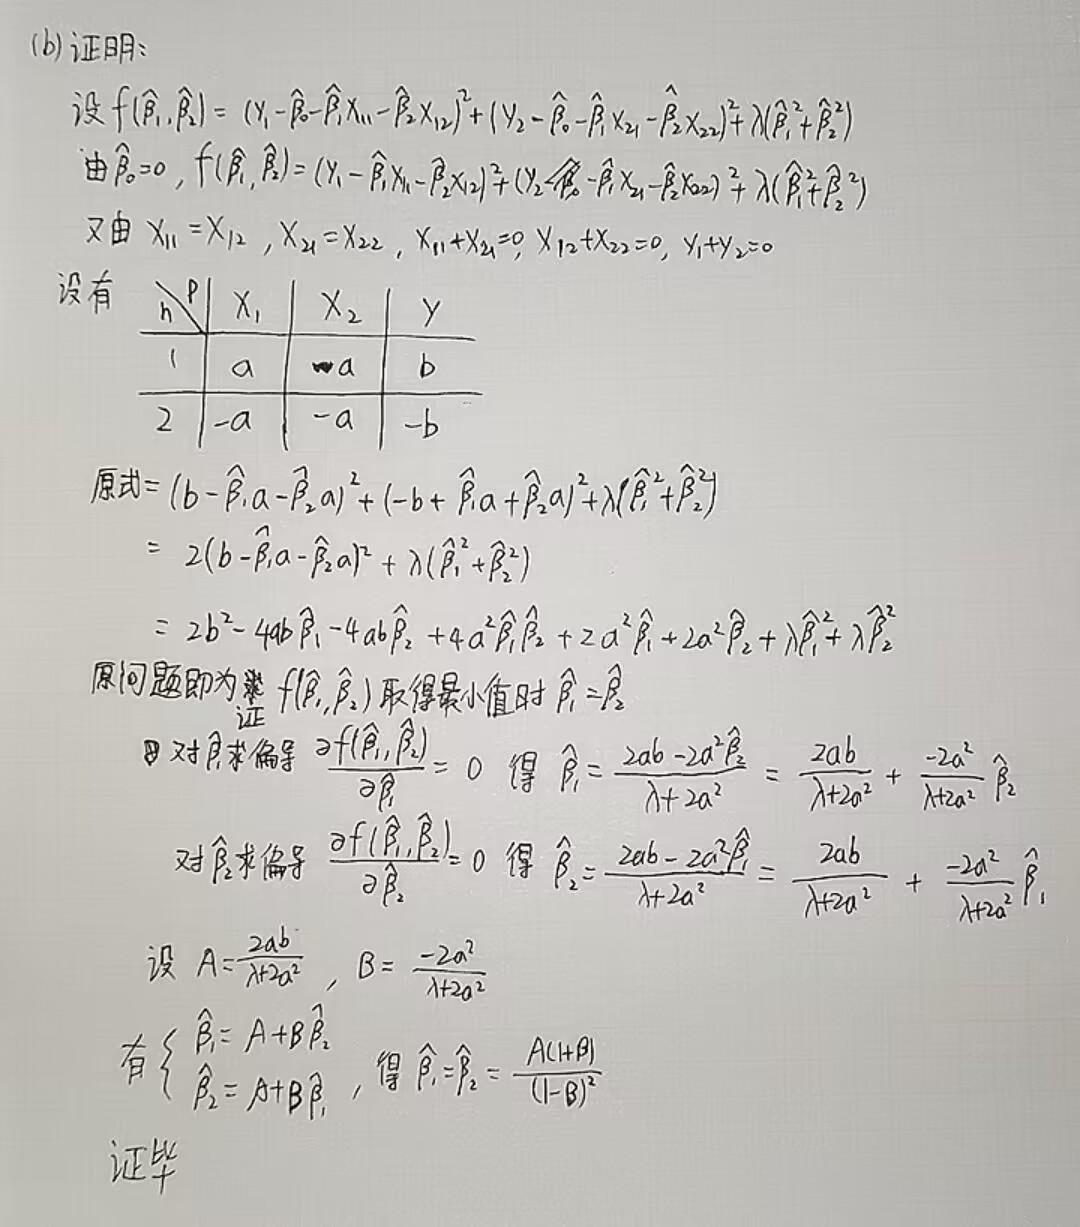 (b) 证明:
设 f(β̂₁,β̂₂) = (y₁-β̂₀-β̂₁x₁₁-β̂₂x₁₂)²+(y₂-β̂₀-β̂₁x₂₁-β̂₂x₂₂)²+λ(β̂₁²+β̂₂²)
由β̂₀=0, f(β̂₁,β̂₂)=(y₁-β̂₁x₁₁-β̂₂x₁₂)²+(y₂-β̂₁x₂₁-β̂₂x₂₂)²+λ(β̂₁²+β̂₂²)
又由 x₁₁=x₁₂, x₂₁=x₂₂, x₁₁+x₂₁=0, x₁₂+x₂₂=0, y₁+y₂=0
设有
n p X₁ X₂ y
1 a a b
2 -a -a -b
原式=(b-β̂₁a-β̂₂a)²+(-b+β̂₁a+β̂₂a)²+λ(β̂₁²+β̂₂²)
= 2(b-β̂₁a-β̂₂a)²+λ(β̂₁²+β̂₂²)
= 2b²-4abβ̂₁-4abβ̂₂+4a²β̂₁β̂₂+2a²β̂₁+2a²β̂₂+λβ̂₁²+λβ̂₂²
原问题即为证 f(β̂₁,β̂₂)取得最小值时 β̂₁=β̂₂
对β̂₁求偏导 ∂f(β̂₁,β̂₂)/∂β̂₁ = 0 得 β̂₁ = (2ab-2a²β̂₂)/(λ+2a²) = 2ab/(λ+2a²) + -2a²/(λ+2a²) β̂₂
对β̂₂求偏导 ∂f(β̂₁,β̂₂)/∂β̂₂ = 0 得 β̂₂ = (2ab-2a²β̂₁)/(λ+2a²) = 2ab/(λ+2a²) + -2a²/(λ+2a²) β̂₁
设 A=2ab/(λ+2a²), B=-2a²/(λ+2a²)
有{ β̂₁=A+Bβ̂₂
β̂₂=A+Bβ̂₁, 得 β̂₁=β̂₂=A(1+B)/(1-B)²
证毕